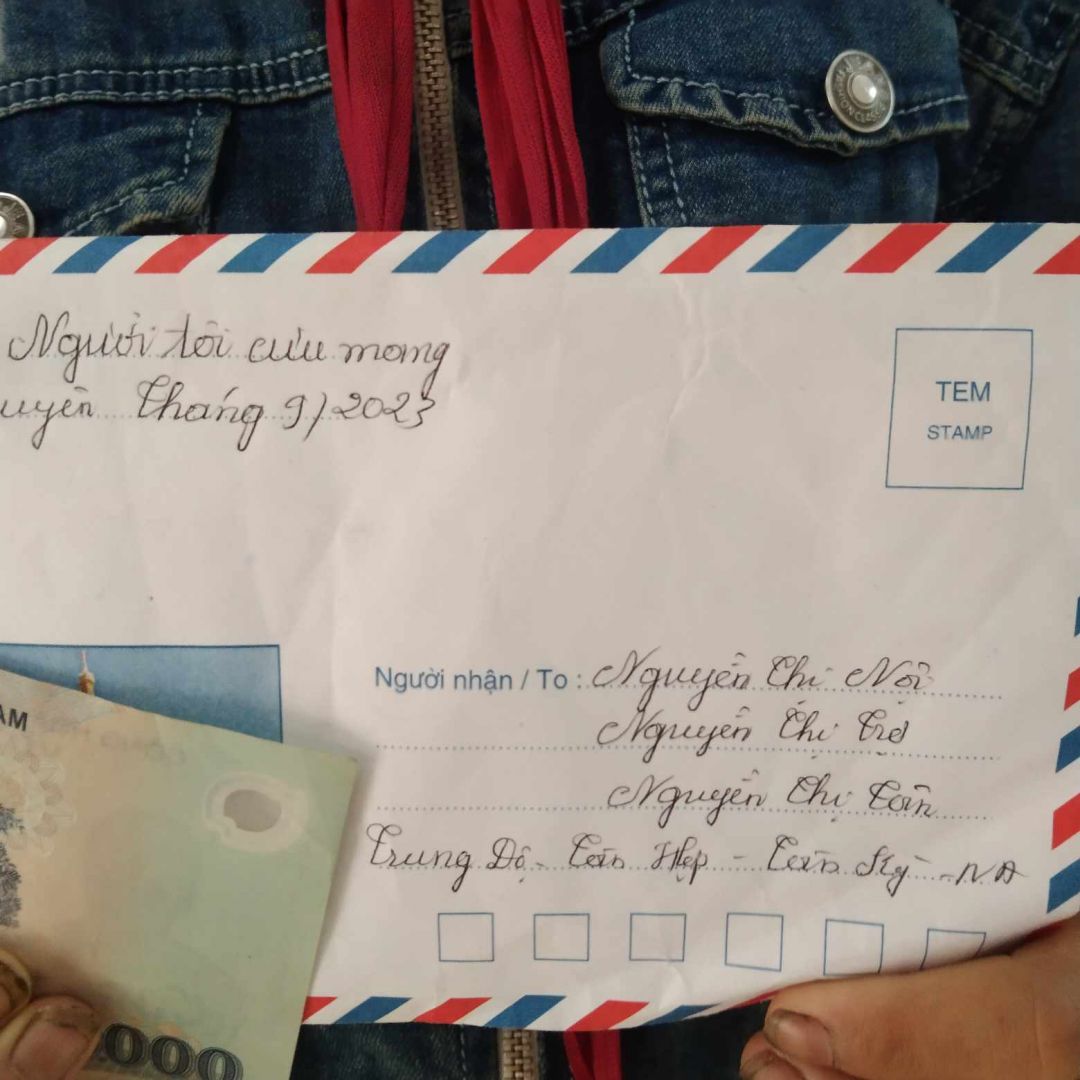 Người tôi cưu mang
uyên Tháng 9/2023
TEM
STAMP
Người nhận / To : Nguyễn Thị Nôi
Nguyễn Thị
Nguyễn Thị Tân
Trung Độ - Tân Hợp - Tân Kỳ - NA
AM
000